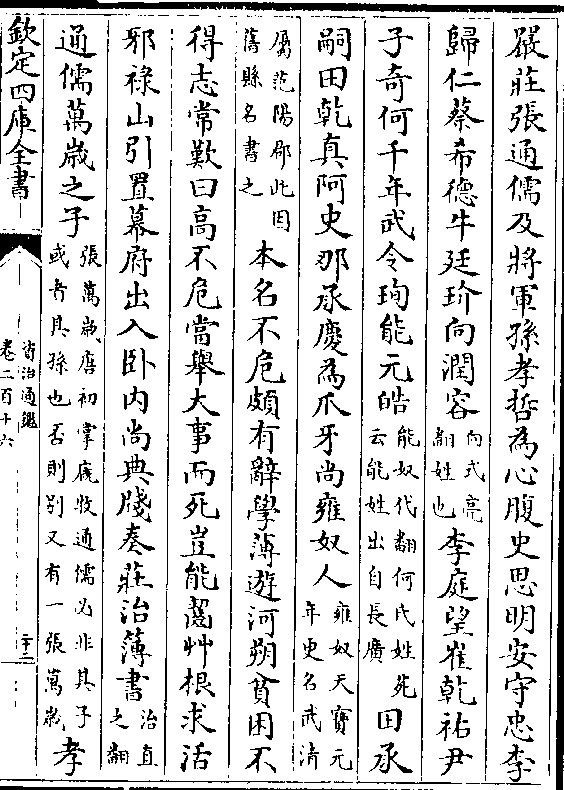 嚴莊張通儒及將軍孫孝哲為心腹史思明安守忠李
歸仁蔡希德牛廷玠向潤容向式亮翻姓也李庭望崔乾祐尹
子奇何千年武令珣能元皓能奴代翻何氏姓苑云能姓出自長廣田承
嗣田乾真阿史那承慶為爪牙尚雍奴人雍奴天寶元年更名武清
屬范陽郡此因舊縣名書之本名不危頗有辭學薄遊河朔貧困不
得志常歎曰高不危當舉大事而死豈能齧艸根求活
邪祿山引置幕府出入卧內尚典牋奏莊治薄書治直之翻
通儒萬歲之子張萬歲唐初掌廐牧通儒必非其子或者其孫也否則別又有一張萬歲孝
欽定四庫全書
資治通鑑
卷二百十六